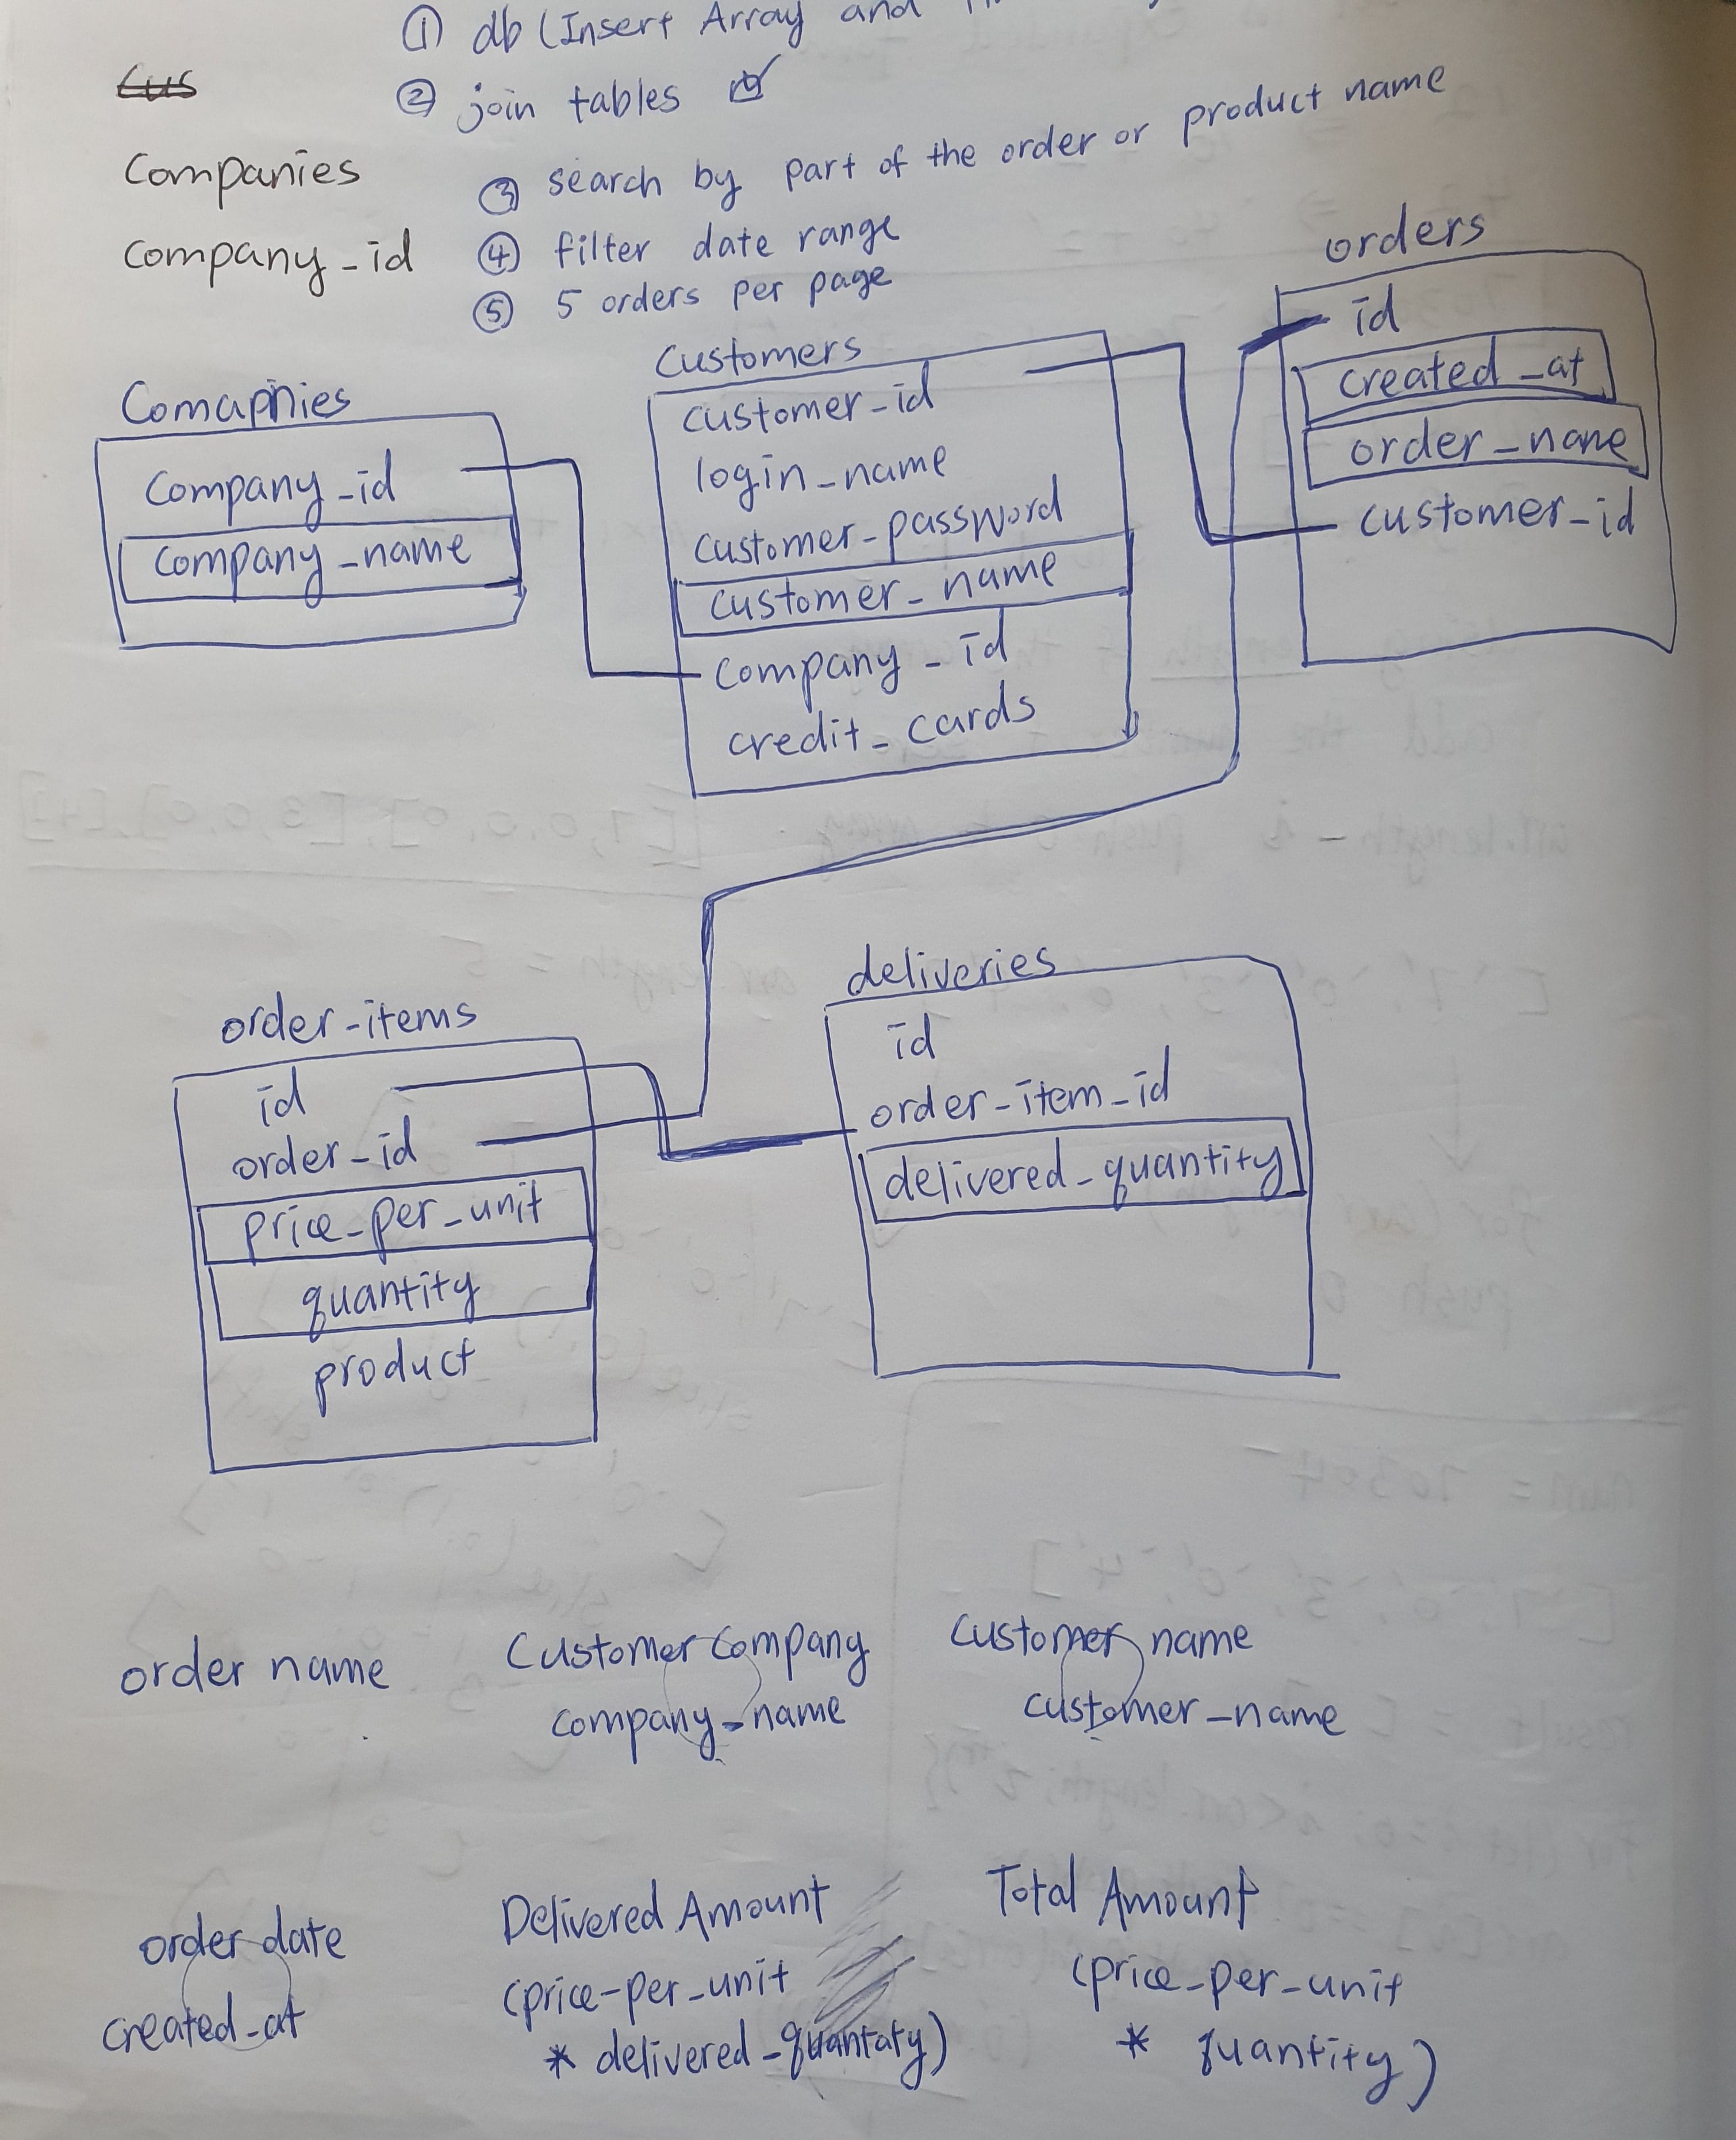 ① db (Insert Array and
② join tables
③ search by part of the order or product name
④ filter date range
⑤ 5 orders per page
Cus
Companies
Company_id
Comapnies
Company_id
Company_name
Customers
customer_id
login_name
customer_password
customer_name
company_id
credit_cards
orders
id
created_at
order_name
customer_id
order-items
id
order_id
price_per_unit
quantity
product
deliveries
id
order-item_id
delivered_quantity
order name
Customer Company
company_name
Customer name
customer_name
order date
created_at
Delivered Amount
(price-per_unit
* delivered_quantaty)
Total Amount
(price_per_unit
* quantity)